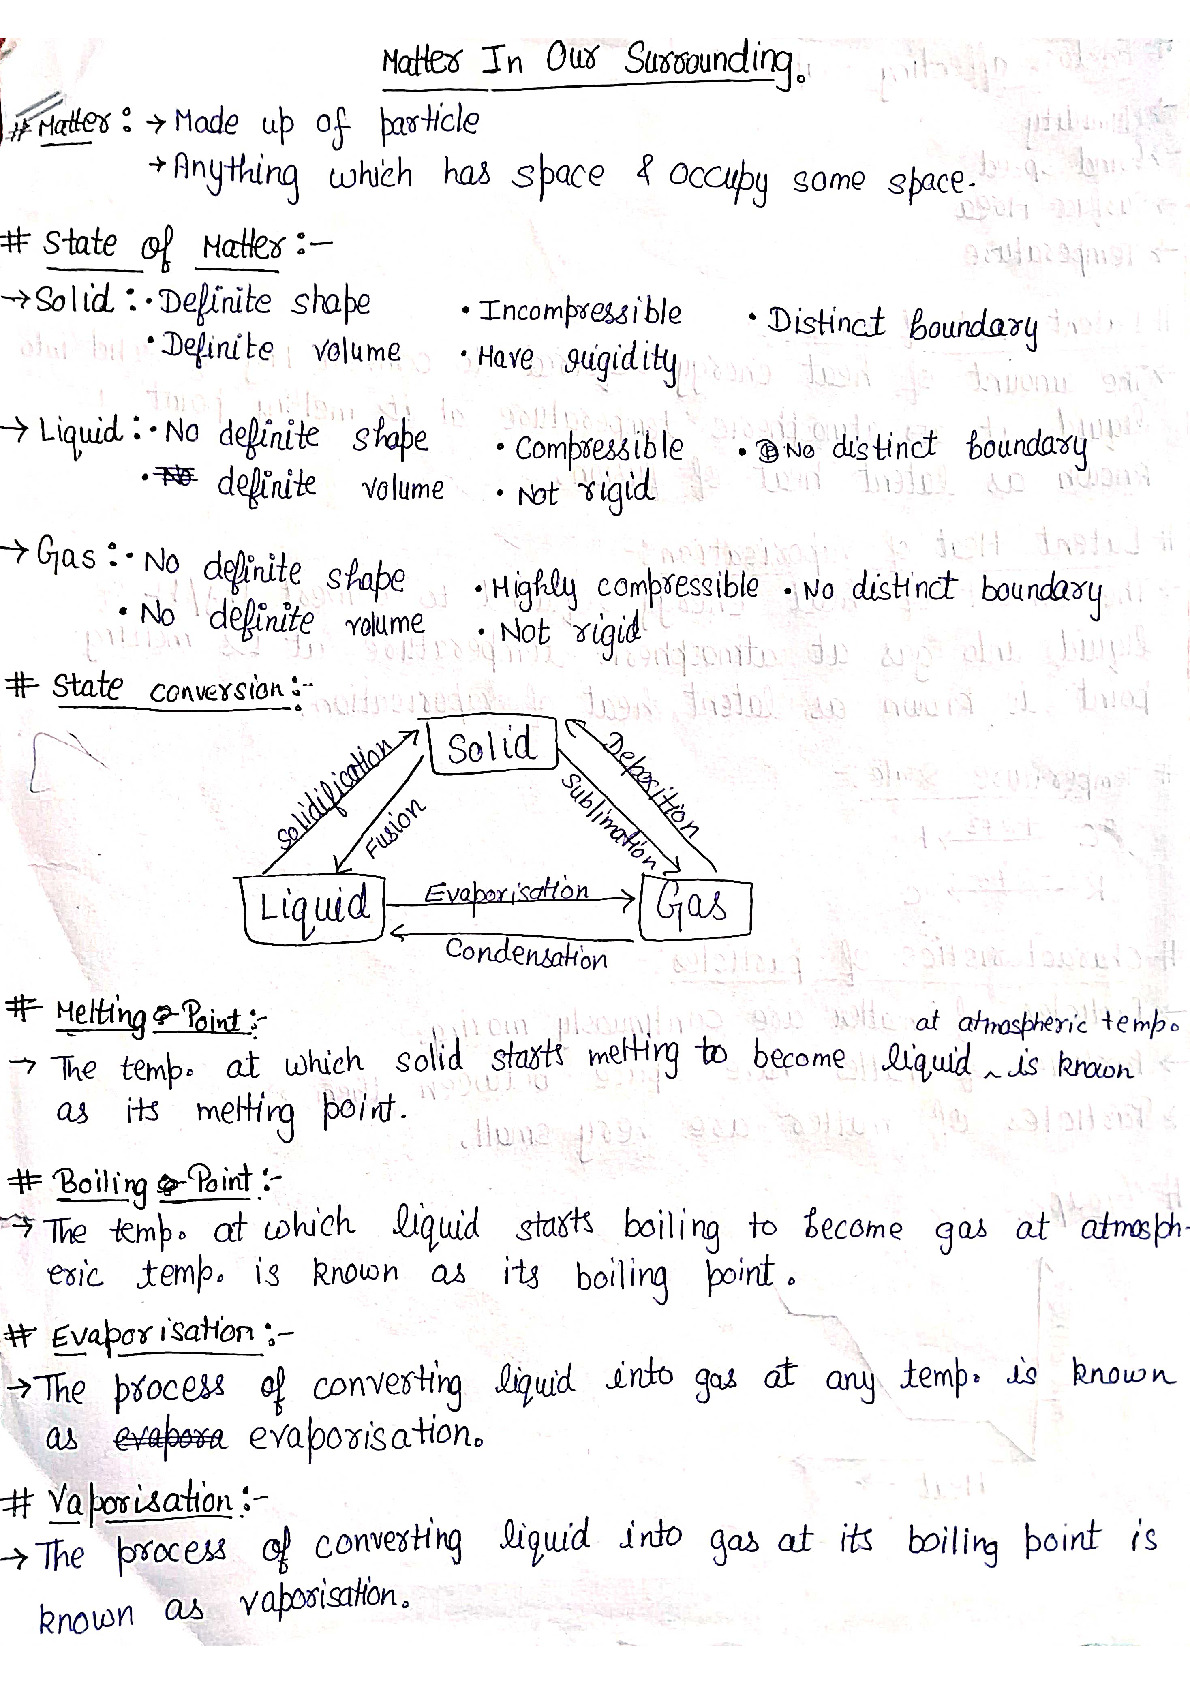 Matter In Our Surrounding.
# Matter :→ Made up of particle
→ Anything which has space & occupy some space.
# State of Matter :-
→ Solid : • Definite shape • Incompressible • Distinct boundary
• Definite volume • Have rigidity
→ Liquid : • No definite shape • Compressible • No distinct boundary
• No definite volume • Not rigid
→ Gas : • No definite shape • Highly compressible • No distinct boundary
• No definite volume • Not rigid
# State conversion :-
Solid
Solidification
Fusion
Sublimation
Deposition
Liquid
Evaporisation
Gas
Condensation
# Melting Point :-
at atmospheric temp.
→ The temp. at which solid starts melting to become liquid ^ is known
as its melting point.
# Boiling Point :-
→ The temp. at which liquid starts boiling to become gas at atmosph-
eric temp. is known as its boiling point.
# Evaporisation :-
→ The process of converting liquid into gas at any temp. is known
as evapora evaporisation.
# Vaporisation :-
→ The process of converting liquid into gas at its boiling point is
known as vaporisation.